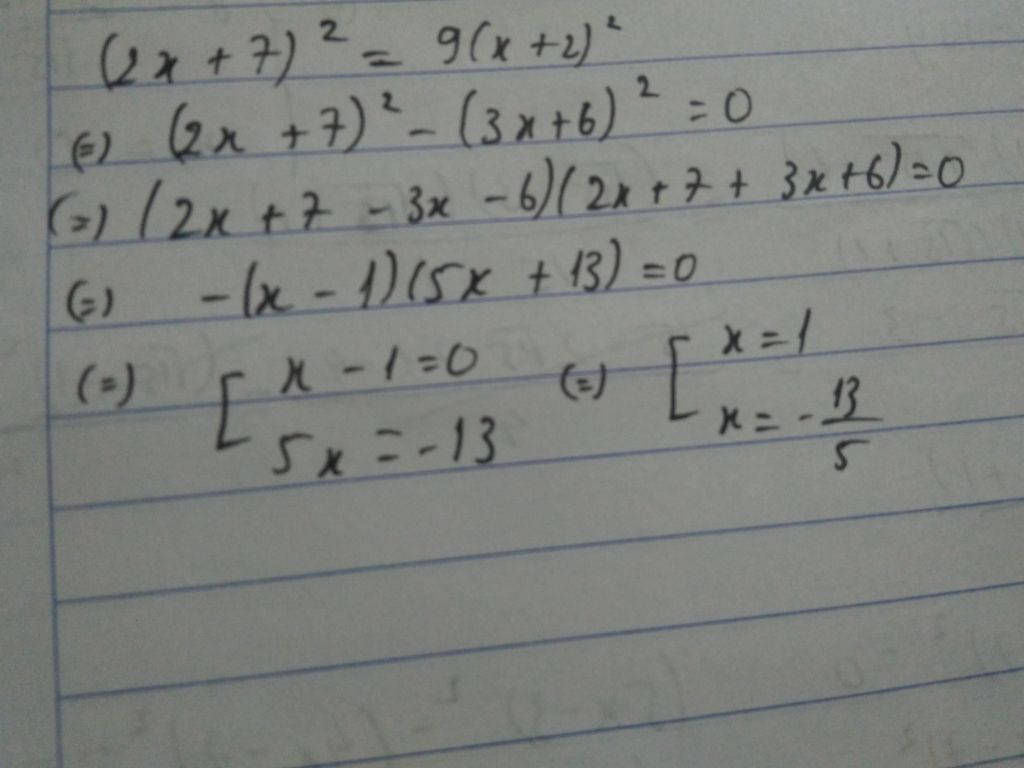 (2x + 7)² = 9(x + 2)²
(=) (2x + 7)² - (3x + 6)² = 0
(=) (2x + 7 - 3x - 6)(2x + 7 + 3x + 6) = 0
(=) -(x - 1)(5x + 13) = 0
(=) [ x - 1 = 0 (=) [ x = 1
5x = -13 x = -13/5